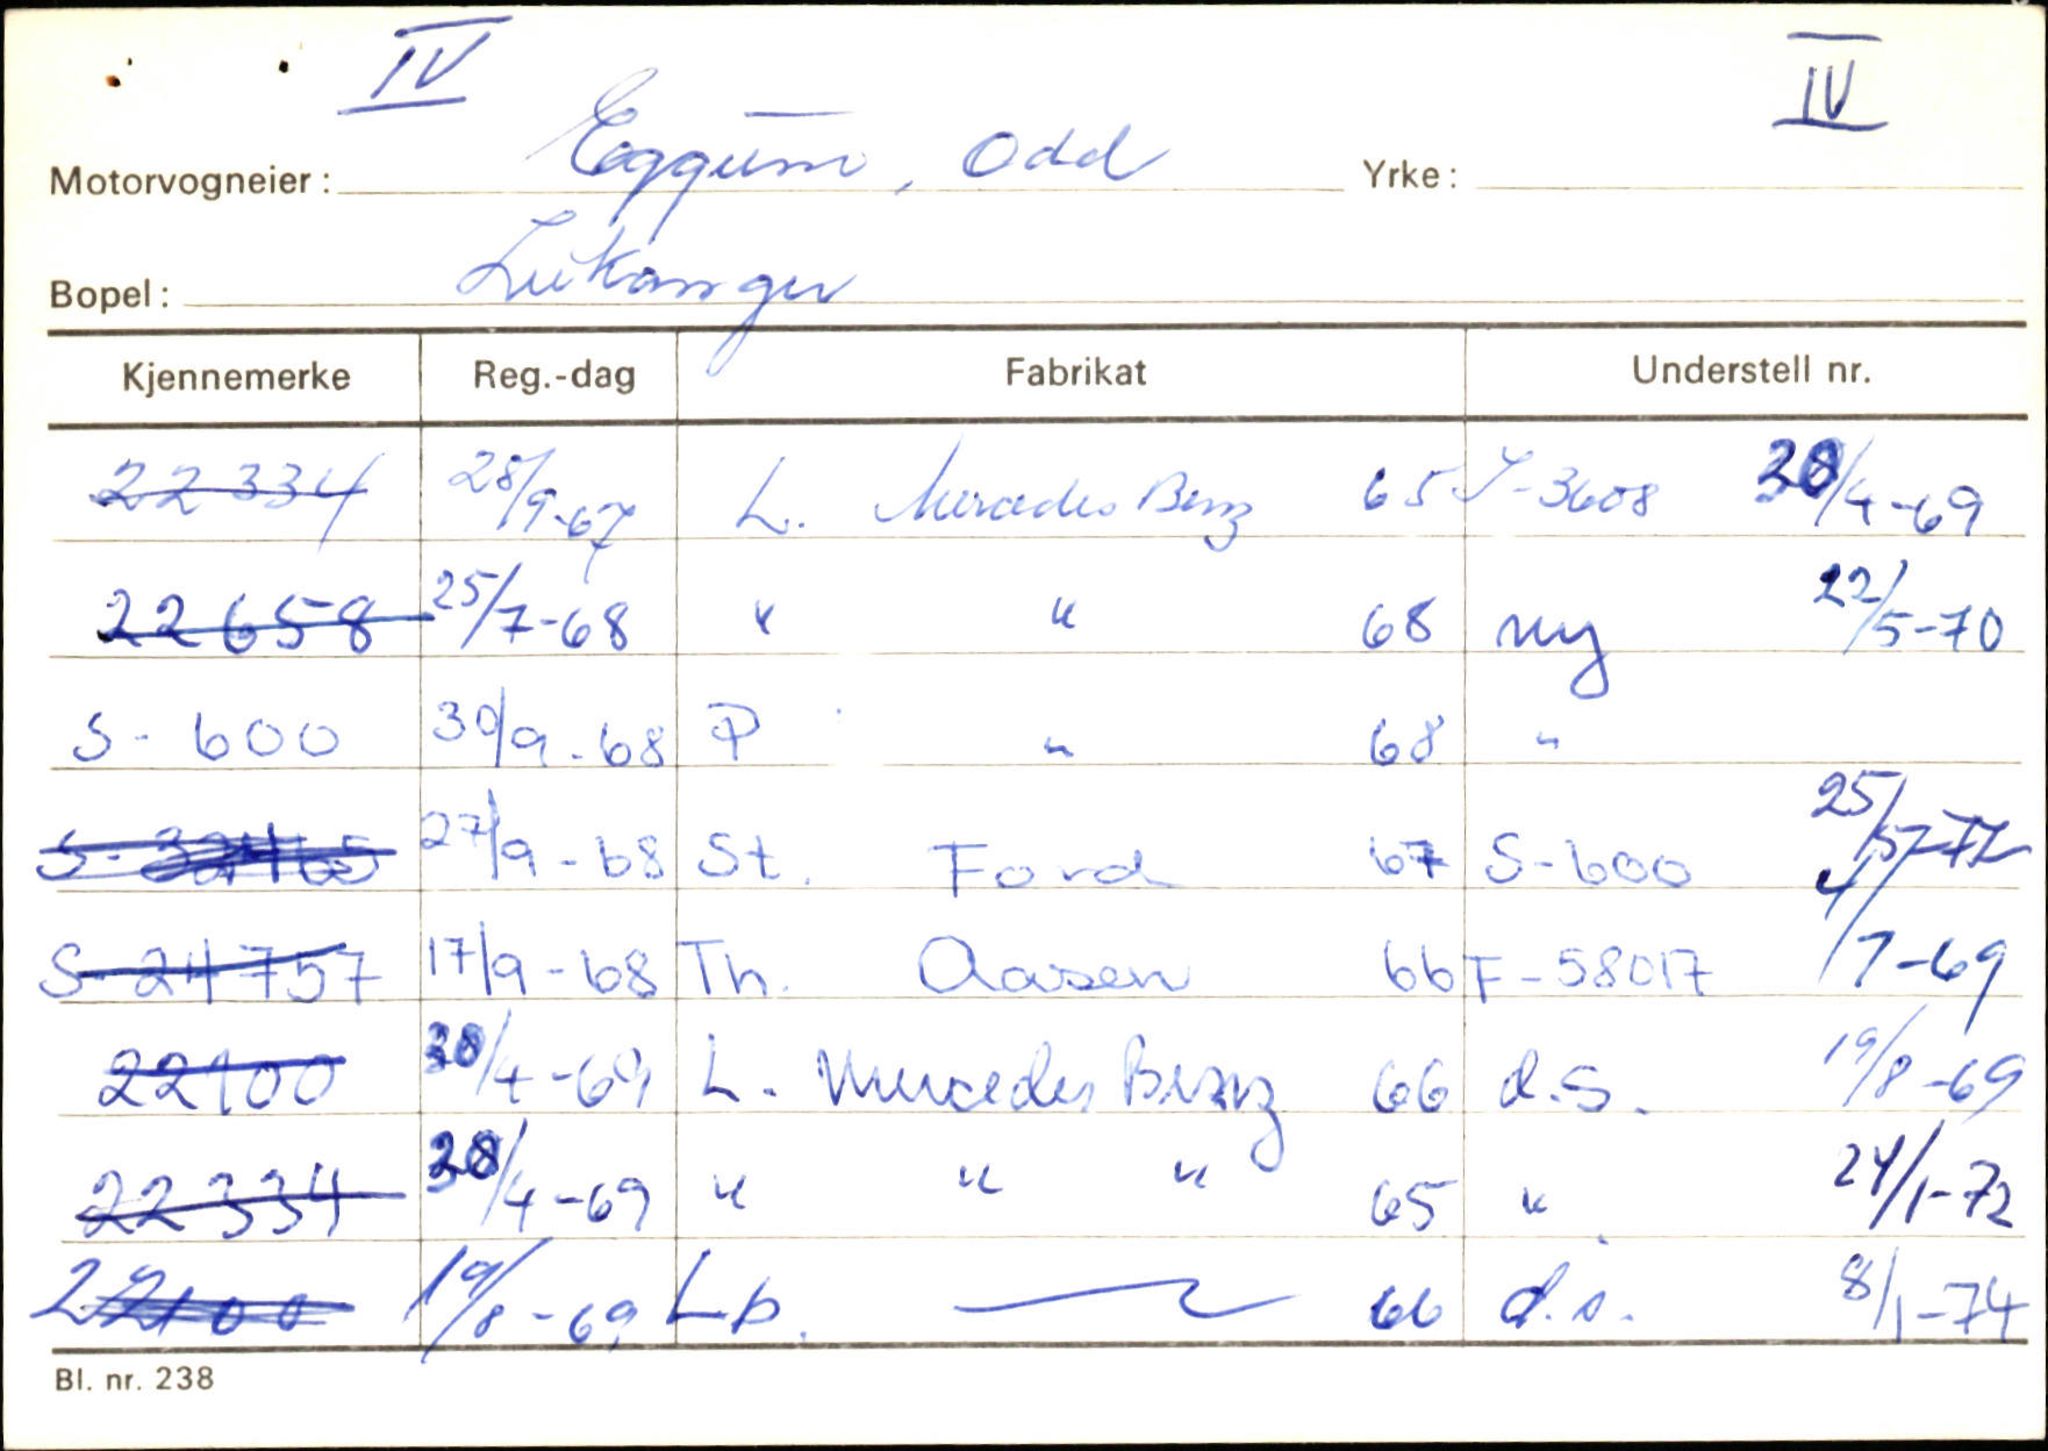 IV IV
Motorvogneier: Eggum, Odd Yrke:
Bopel: Leikanger
Kjennemerke Reg.-dag Fabrikat Understell nr.
22334 28/9-67 L. Mercedes Benz 65 S-3608 /4-69
22658 25/7-68 " " 68 ny 22/5-70
S-600 30/9-68 P " 68 "
27/9-68 St. Ford 67 S-600 25/5-72
S-24757 17/9-68 Th. Aasen 66 F-58017 4/7-69
22100 /4-69 L. Mercedes Benz 66 d.s. 19/8-69
22334 /4-69 " " " 65 " 24/1-72
22100 19/8-69 Lb. 66 d.s. 8/1-74
Bl. nr. 238